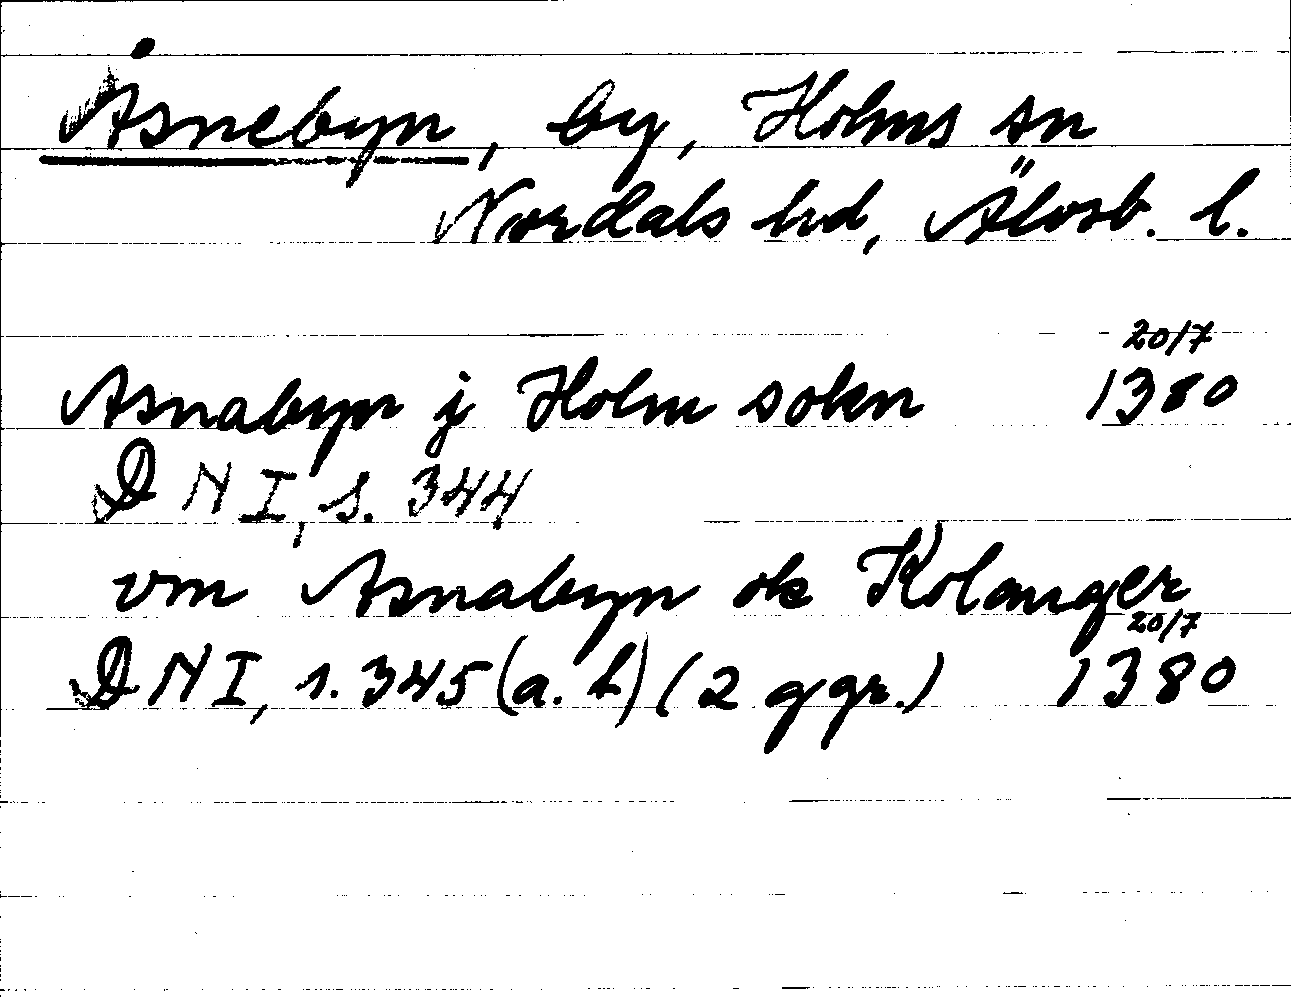 Åsnebyn, by, Holms sn
Nordals hd, Älvsb. l.
20/7
Asnabyn j Holm sokn 1380
DN I, s. 344
vm Asnabyn ok Kolanger
20/7
DN I, s. 345 (a. b) (2 ggr.) 1380